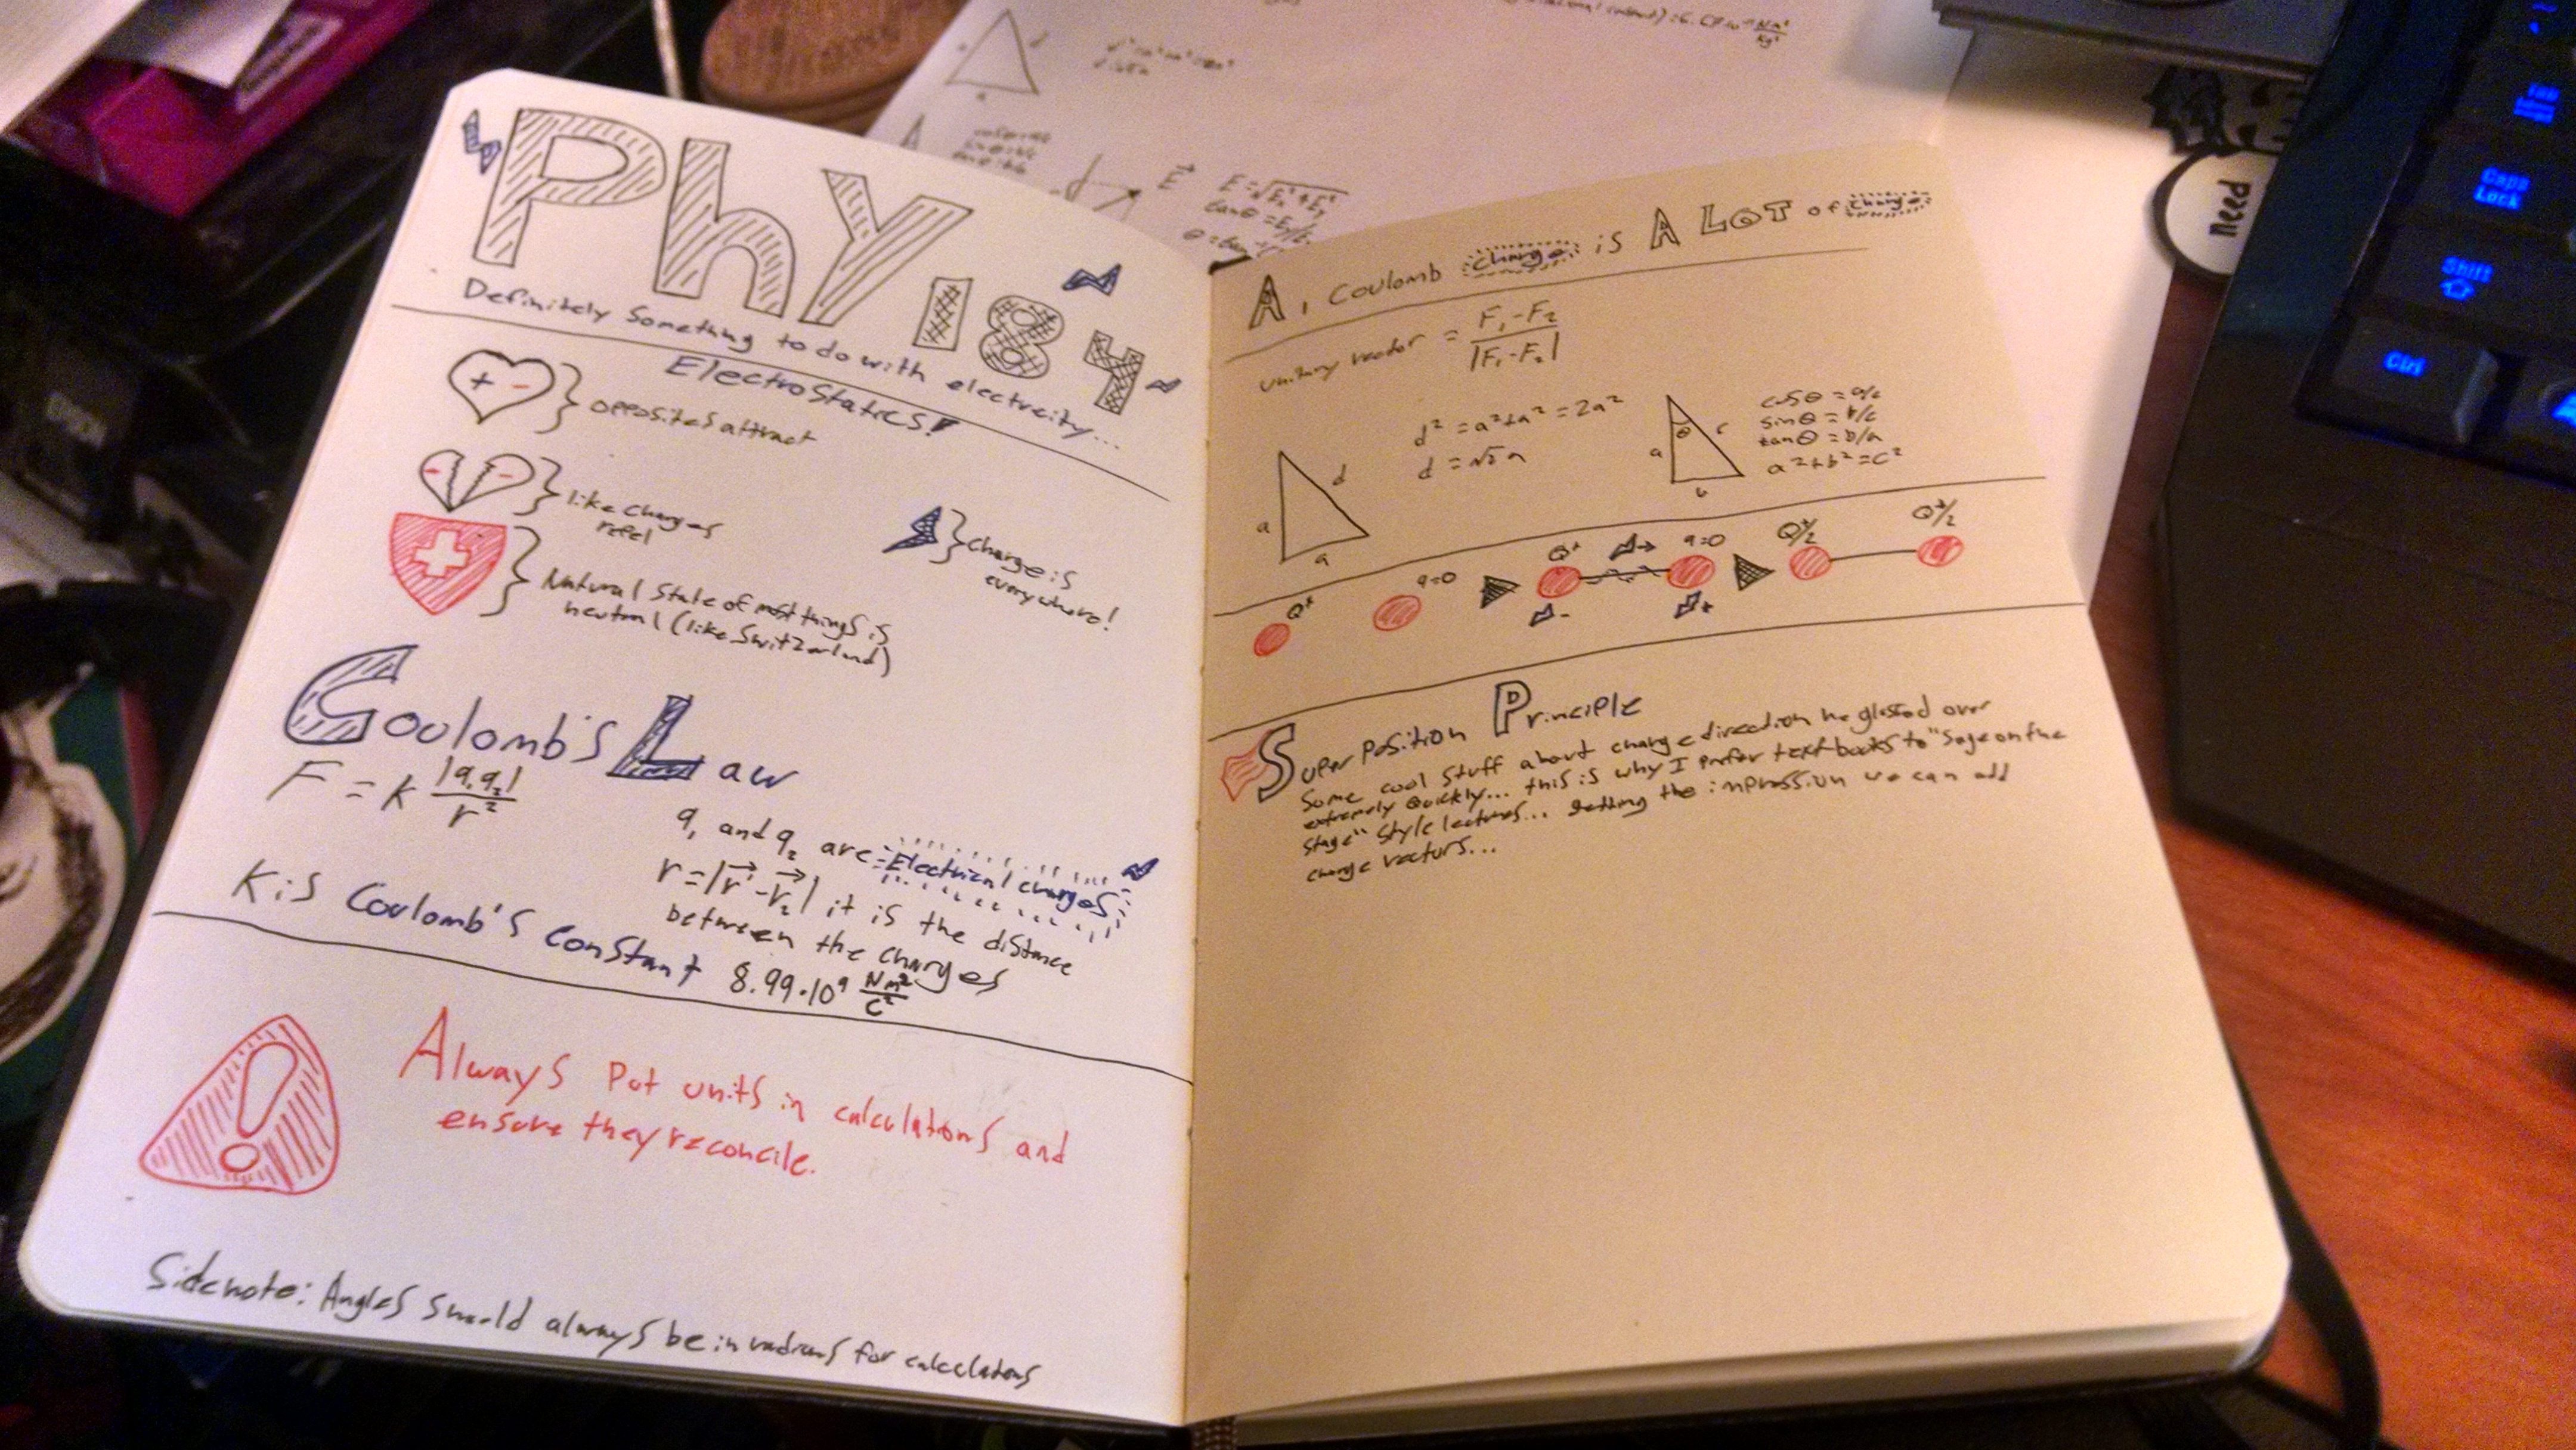 PhY 184
Definitely Something to do with electricity...
ElectroStatics!
+ -
opposites attract
- -
like charges
repel
charge is
everywhere!
Natural State of most things is
neutral (like Switzerland)
Coulomb's Law
F = k |q₁q₂| / r²
q₁ and q₂ are Electrical charges
r = |r⃗ - r⃗₂| it is the distance
between the charges
K is Coulomb's constant 8.99·10⁹ Nm²/C²
Always Put units in calculations and
ensure they reconcile.
Sidenote: Angles should always be in radians for calculations
A 1 Coulomb charge is A LOT of charge
unitary vector = F₁-F₂ / |F₁-F₂|
d² = a²+a² = 2a²
d = √2 a
a
d
a
θ
a
c
b
cosθ = a/c
sinθ = b/c
tanθ = b/a
a²+b²=c²
Q⁺
q=0
Q⁺
q=0
-
+
Q⁺/2
Q⁺/2
Super Position Principle
Some cool stuff about charge direction he glossed over
extremely quickly... this is why I prefer textbooks to "Sage on the
Stage" Style lectures... getting the impression we can add
charge vectors...
d
a
E⃗
tanθ = 
Need
Tab
Caps
Lock
Shift
Ctrl